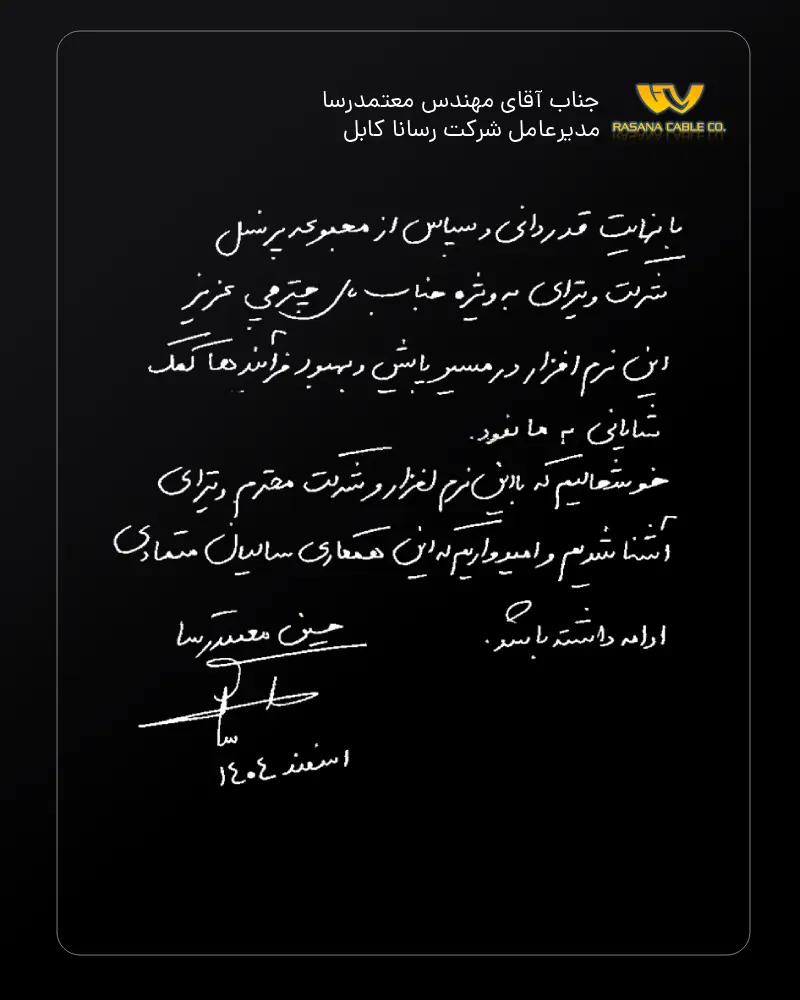 جناب آقای مهندس معتمدرسا
مدیرعامل شرکت رسانا کابل
RASANA CABLE CO.
با نهایت قدردانی و سپاس از مجموعه پرسنل
شرکت ویترای به ویژه جناب عزیز
این نرم افزار در مسیر پایش و بهبود فرآیندها کمک
شایانی به ما نمود.
خوشحالیم که با این نرم افزار و شرکت محترم ویترای
آشنا شدیم و امیدواریم که این همکاری سالیان متمادی
ادامه داشته باشد.
حسین معتمدرسا
اسفند ۱۴۰۴